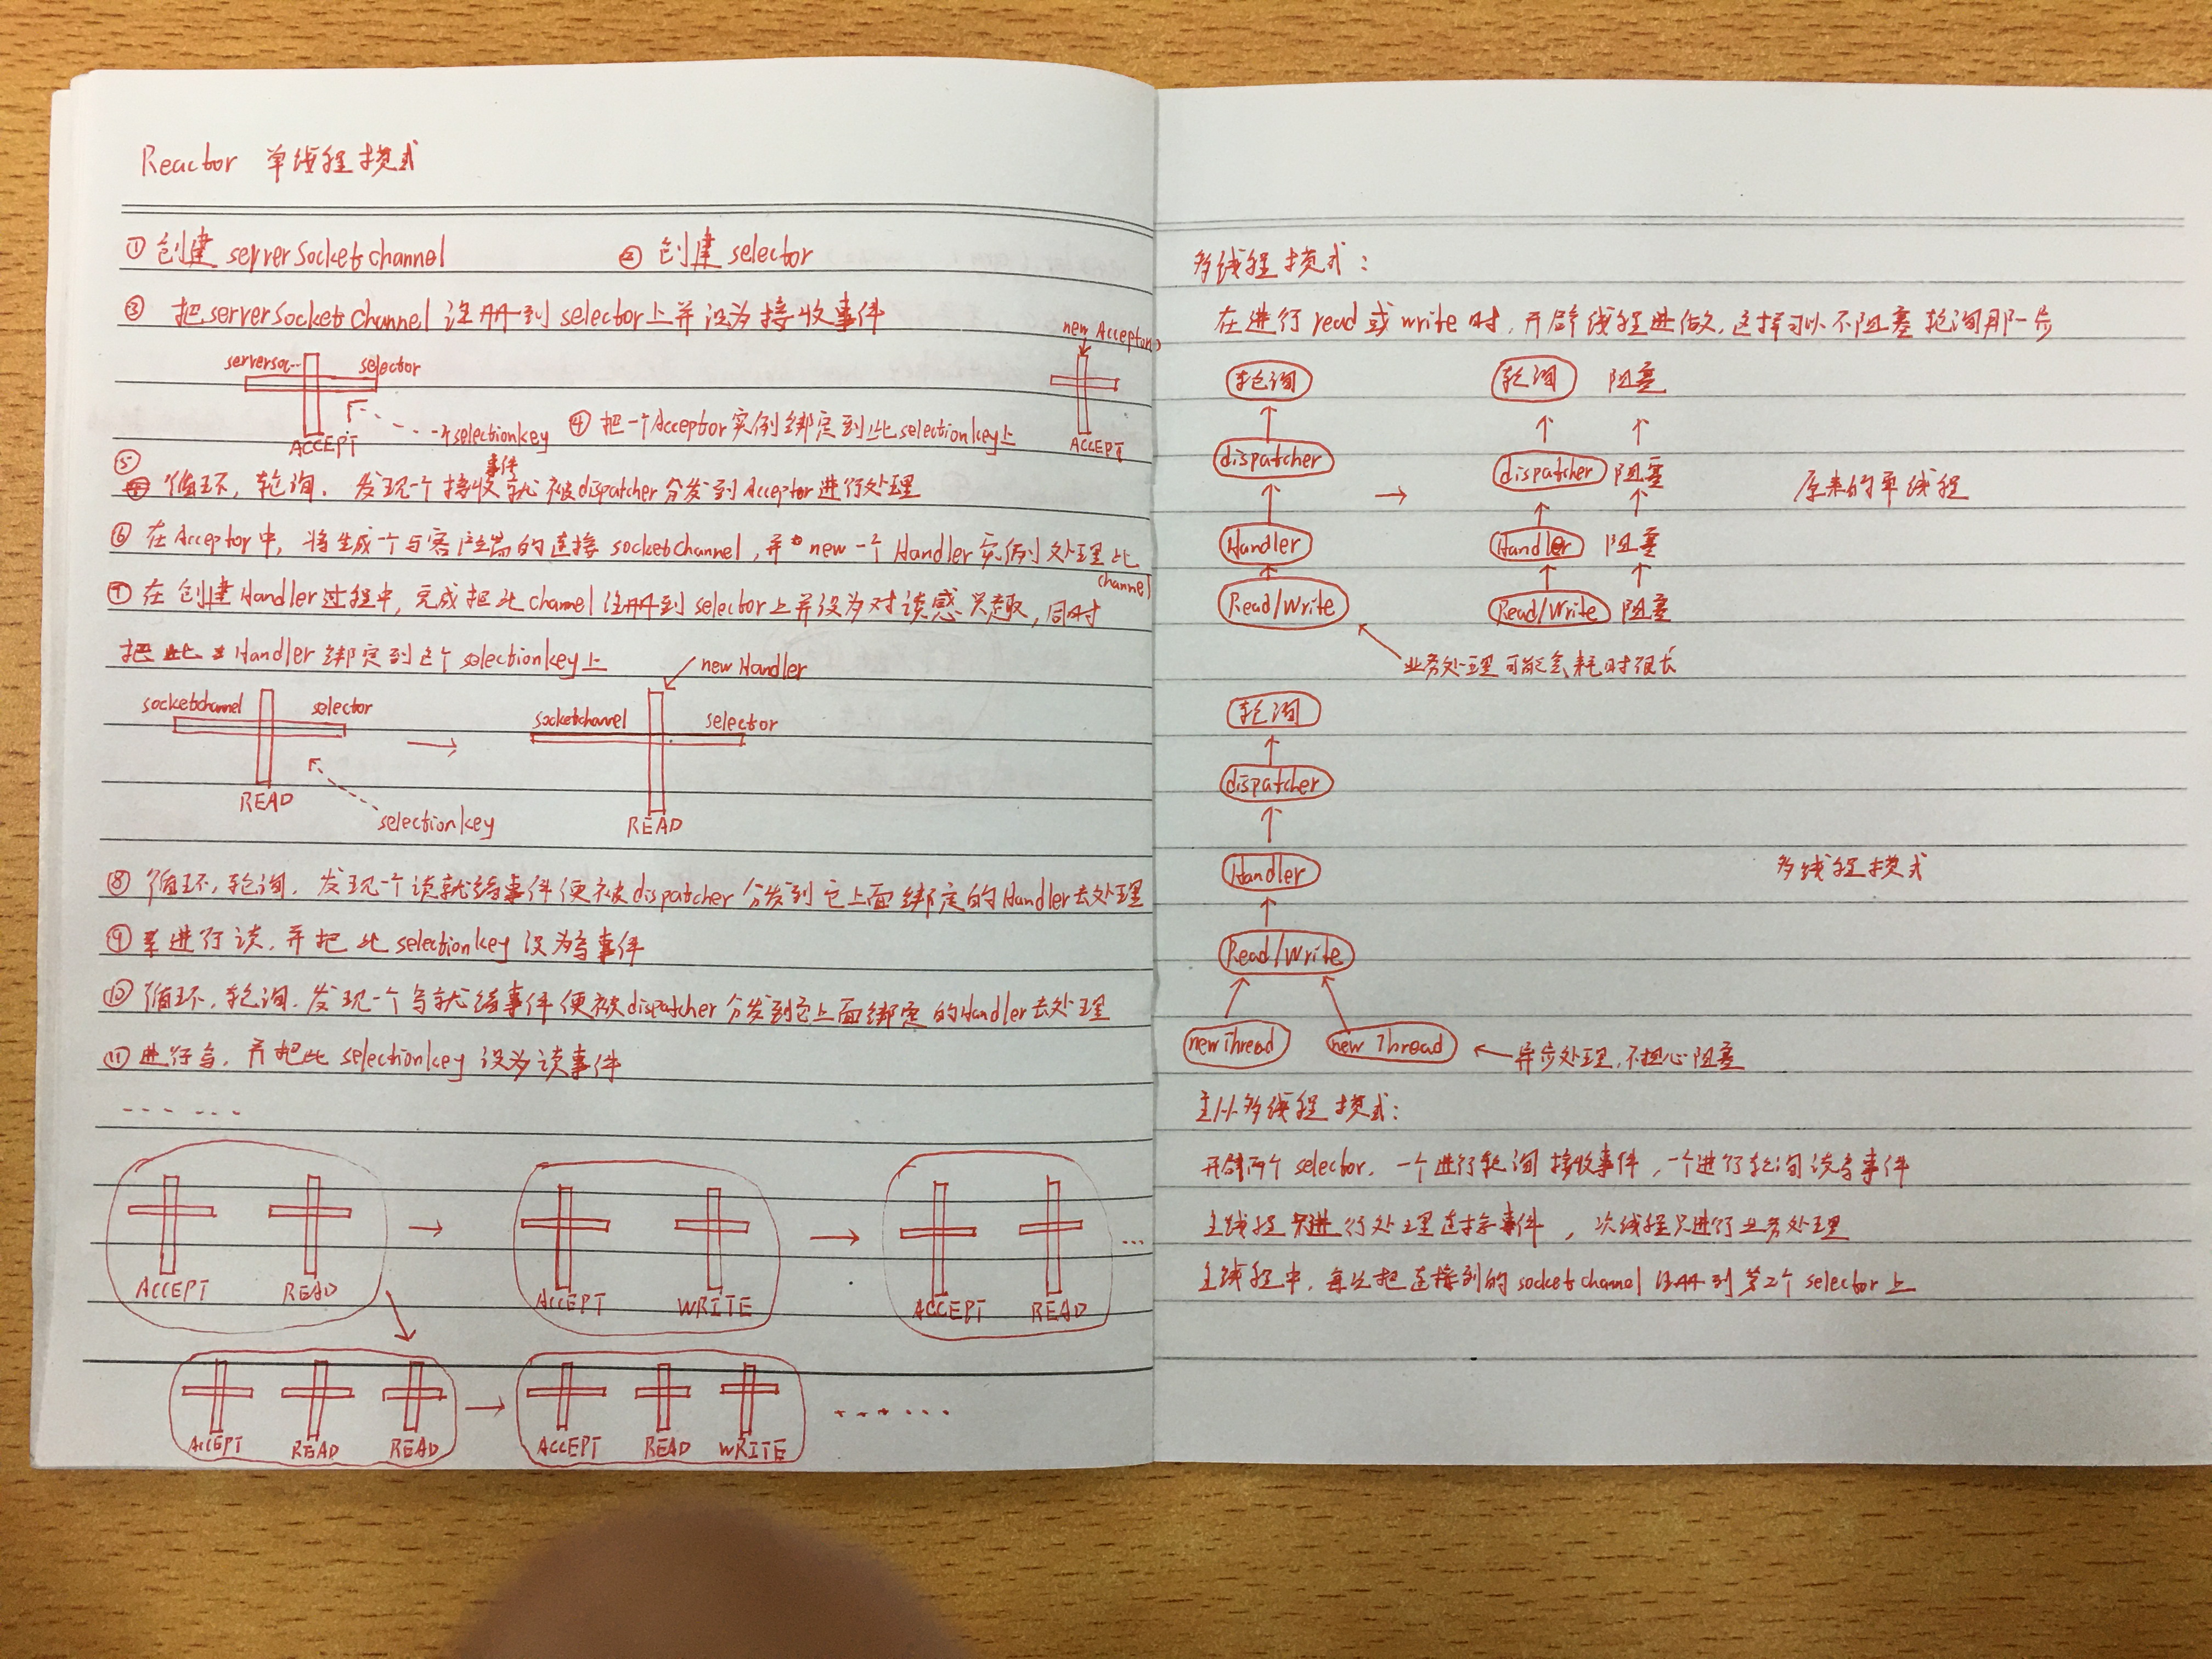 Reactor 单线程模式
① 创建 serverSocketchannel ② 创建 selector
③ 把serverSocketchannel 注册到selector上并设为接收事件
serversoc... selector
ACCEPT
selectionkey ④ 把一个Acceptor实例绑定到此selectionkey上
new Acceptor()
ACCEPT
⑤ 循环，轮询，发现一个接收事件就被dispatcher分发到Acceptor进行处理
⑥ 在Acceptor中，将生成个与客户端的连接 socketchannel，并 new 一个 Handler实例处理此channel
⑦ 在创建Handler过程中，完成把此channel注册到selector上并设为对读感兴趣，同时
把此 Handler 绑定到这个 selectionkey上
socketchannel selector → socketchannel selector
new Handler
READ READ
selectionkey
⑧ 循环，轮询，发现一个读就绪事件便被dispatcher分发到它上面绑定的Handler去处理
⑨ 进行读，再把此 selectionkey 设为写事件
⑩ 循环，轮询，发现个写就绪事件便被dispatcher分发到它上面绑定的Handler去处理
⑪ 进行写，再把此 selectionkey 设为读事件
......
ACCEPT READ → ACCEPT WRITE → ACCEPT READ ...
ACCEPT READ READ → ACCEPT READ WRITE ......
多线程模式：
在进行 read 或 write 时，开启线程进行做，这样可以不阻塞轮询那一步
轮询 轮询 阻塞
dispatcher → dispatcher 阻塞 原来的单线程
Handler Handler 阻塞
Read/Write Read/Write 阻塞
业务处理可能会耗时很长
轮询
dispatcher
Handler 多线程模式
Read/Write
newThread new Thread ← 异步处理，不担心阻塞
主从多线程模式：
开启两个 selector，一个进行轮询接收事件，一个进行轮询读写事件
主线程只进行处理连接事件，次线程只进行业务处理
主线程中，每次把连接到的 socketchannel 注册到第2个 selector 上